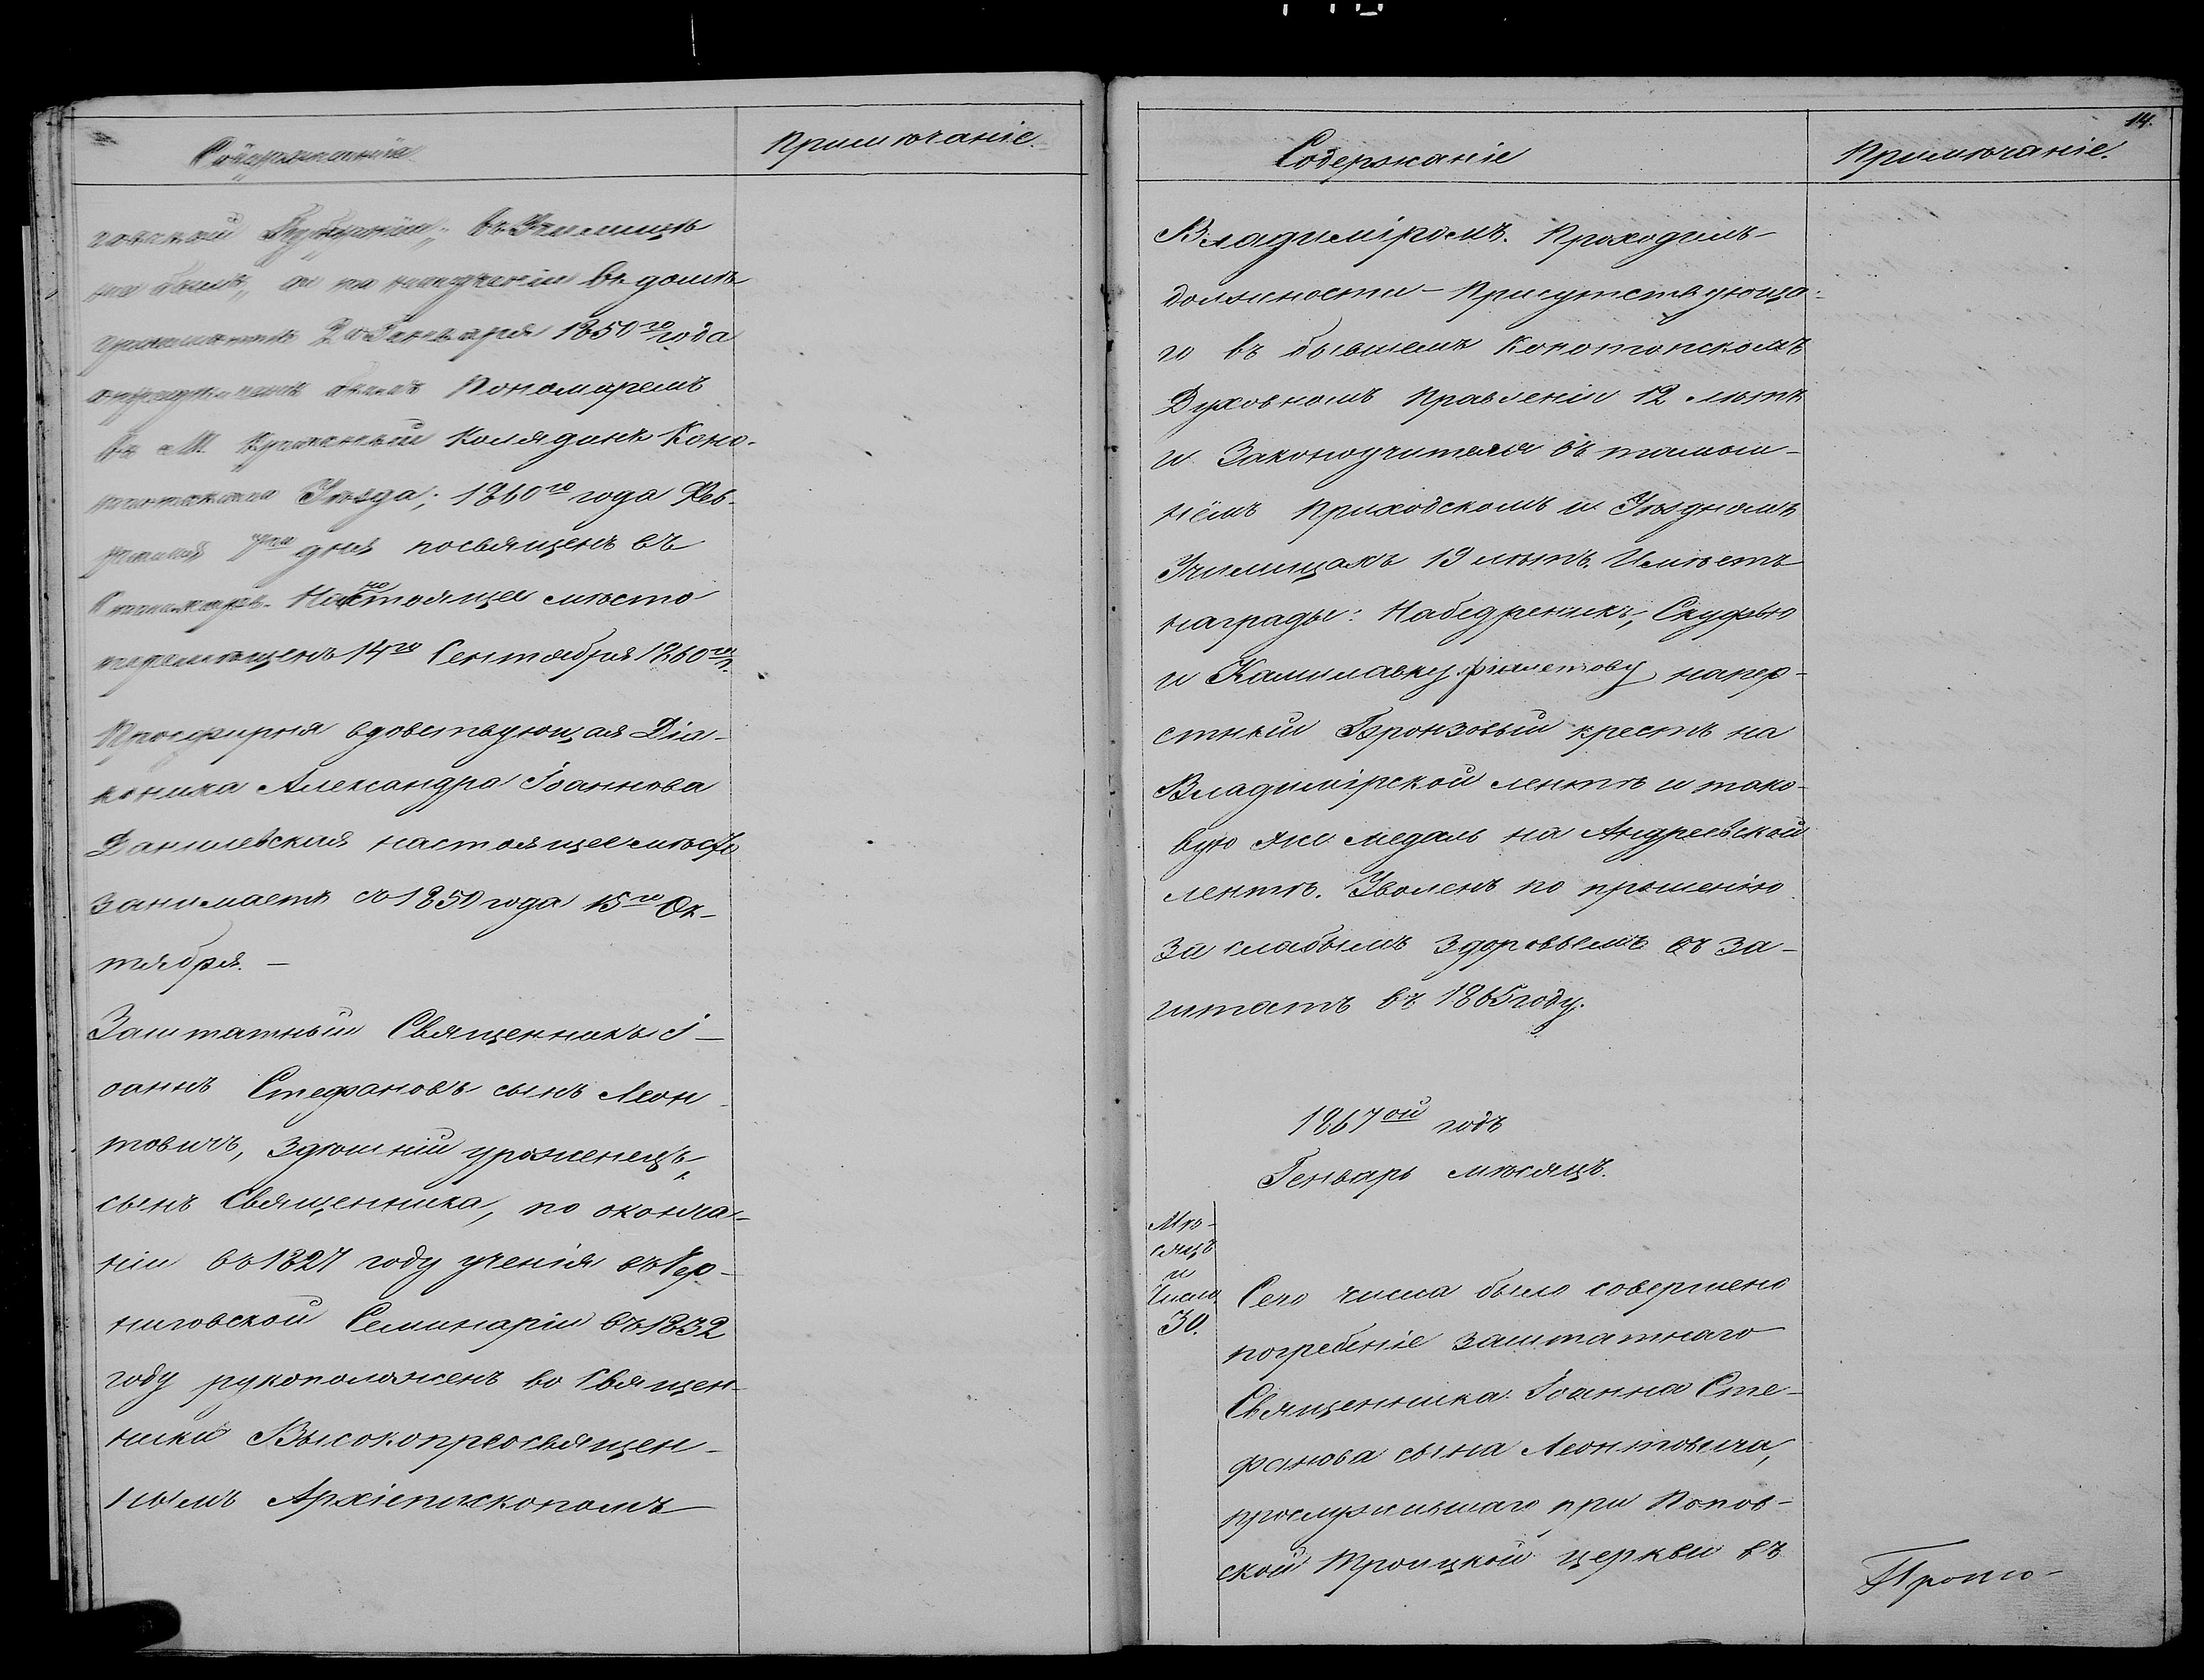 Содержаніе
Примѣчаніе.
говской Губерніи; въ Училищѣ
не былъ, а по наученіи въ домѣ
грамотѣ 2го Генваря 1850го года
опредѣленъ былъ Пономаремъ
въ М. Красный Колядинъ Коно-
топскаго Уѣзда; 1860го года Фев-
раля 7го дня посвященъ въ
Стихарь. На настоящее мѣсто
перемѣщенъ 14го Сентября 1860го г.
Просфирня вдовствующая Діа-
кониха Александра Іоаннова
Данилевская настоящее мѣсто
занимаетъ съ 1850 года 15го Ок-
тября. —
Заштатный Священникъ І-
оаннъ Стефановъ сынъ Леон-
товичъ, здѣшній уроженецъ,
сынъ Священника, по оконча-
ніи въ 1827 году ученія въ Чер-
ниговской Семинаріи въ 1832
году рукоположенъ во Священ-
ники Высокопреосвящен-
нымъ Архіепископомъ
14.
Содержаніе
Примѣчаніе.
Владиміромъ. Проходилъ
должности — Присутствующа-
го въ бывшемъ Конотопскомъ
Духовномъ Правленіи 12 лѣтъ
и Законоучителя въ тамош-
немъ Приходскомъ и Уѣздномъ
Училищахъ 19 лѣтъ. Имѣетъ
награды: Набедренникъ, Скуфью
и Камилавку фіалетову напер-
стный Бронзовый крестъ на
Владимірской лентѣ и тако-
вую же медаль на Андреевской
лентѣ. Уволенъ по прошенію
за слабымъ здоровьемъ въ за-
штатъ въ 1865 году.
1867ой годъ
Генварь мѣсяцъ.
Мѣ-
сяцъ
и
Число.
30.
Сего числа было совершено
погребеніе заштатнаго
Священника Іоанна Сте-
фанова сына Леонтовича,
прослужившаго при Попов-
ской Троицкой церкви въ
Прото-